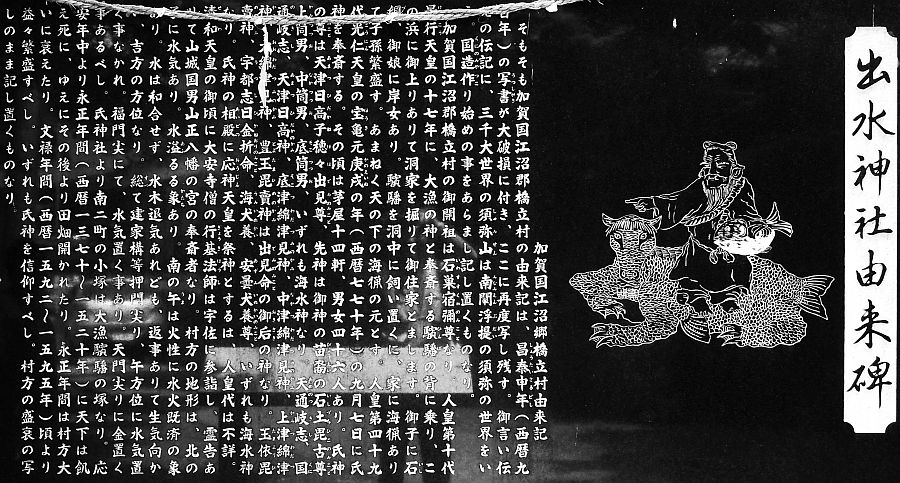 出水神社由来碑
加賀国江沼郷橋立村由来記
そもそも加賀国江沼郡橋立村の由来記は、昌泰中年(西暦九
百年)の写書が大破損に付き、ここに再度写し残す。御言い伝
国造作り始めの事をあらまし記し置くものなり。
の伝記に、三千大世界の須弥山は南閻浮提の須弥の世界をい
加賀国江沼郡橋立村の御開祖は石巣宿彌尊なり、人皇第十代
景行天皇の十七年に、大漁の神と奉斎する
の背に乗り、こ
の浜に御上りありて洞家を掘りて御住家とします。御子に石
御娘に岸女あり。
を洞中に飼い置くに、家に海猟あり
て子孫繁盛す。あまねく天の下の海猟の元とす。人皇第四十九
代光仁天皇の宝亀元庚戌の年(西暦七七十年)の九月七日に氏
神を奉斎する。その頃は茅屋十四軒、男女四十六人あり。氏神
の尊は天津日高子穂々出見尊、先神は御神の苗裔の石土毘古尊
上筒男、中筒男、底筒男、いずれも海水神なり。天、通岐志、国
通岐志、天津日高神、底津綿津見神、中津綿津見神、上津綿津
見神、宇都志日金折命、隼人犬養、安曇犬養等、いずれも海水神
神、大綿津見神、豊玉毘売神は出見命の御后の神なり。玉依毘
なり。氏神の相殿に応神天皇を祭神とするは、人皇代は不詳。
清和天皇の御頃に大安寺僧の行基法師は宇佐に参詣し、霊告あ
せて山城国男山正八幡の宮の奉斎者なり。村方の地形は、北の
に水気あり。水溢るる象あり。南の午は火性に水火既済の象
あり。水は和合せず、水木退気あれども、返事ありて生気向か
い、吉方の方位なり。総て建家構等押門尖り、午方位に水気置
く事なかれ。福門尖にて、水気置く事あり。天門尖りに金置く
事あるべし。氏神社より南二町の小塚は大漁
の塚なり。応
安年中より永正年間(西暦一三七十一～一五二十年)に天下は飢
え死に、ゆえにその後より田畑開かれたり。永正年間は村方大
いに衰えたり。文禄年間(西暦一五九二～一五九五年)頃より
益々繁盛すべし。いずれも氏神を信仰すべし。村方の盛衰の写
しのまま記し置くものなり。